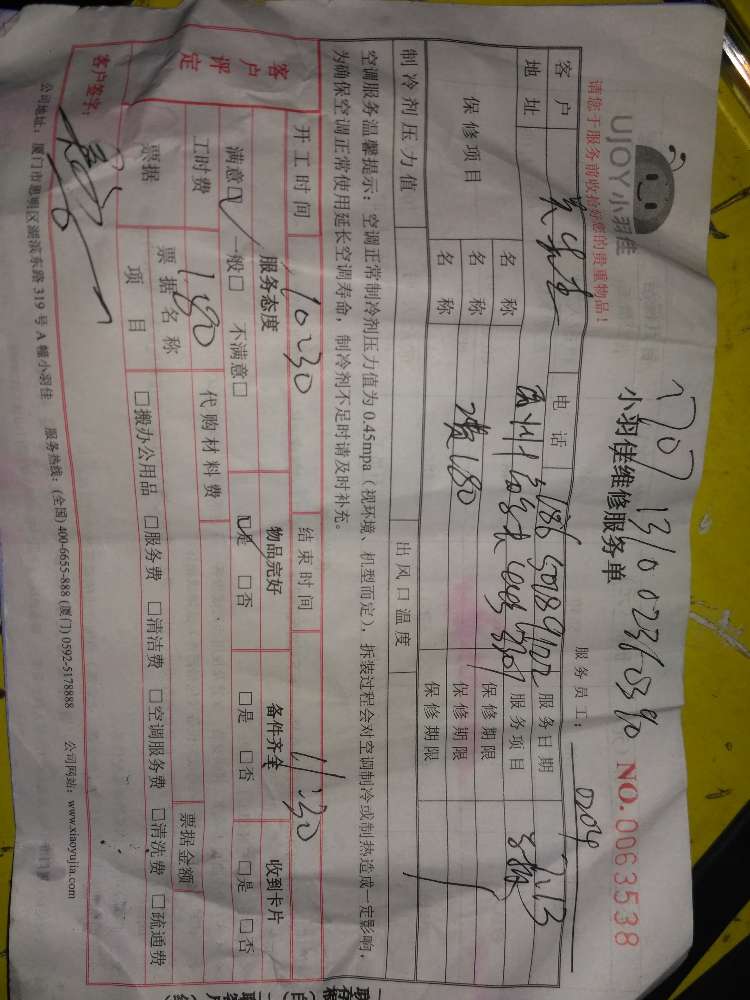 UJOY小羽佳
请您于服务前收拾好您的贵重物品！
小羽佳维修服务单
NO.0063538
服务员工： 0204
客户 电话 服务日期 7.13
地址 服务项目
保修项目 名称 保修期限
名称 180 保修期限
名称 保修期限
制冷剂压力值 出风口温度
空调服务温馨提示：空调正常制冷剂压力值为0.45mpa（视环境、机型而定），拆装过程会对空调制冷或制热造成一定影响，
为确保空调正常使用延长空调寿命，制冷剂不足时请及时补充。
开工时间 10:30 结束时间 11:30
客户评定
服务态度 物品完好 备件齐全 收到卡片
满意□ 一般□ 不满意□ □是 □否 □是 □否 □是 □否
工时费 180 代购材料费
票据 票据名称 票据金额
项目 □搬办公用品 □服务费 □清洁费 □空调服务费 □清洗费 □疏通费
客户签字：
公司地址：厦门市思明区湖滨东路319号A幢小羽佳 服务热线：(全国)400-6655-888 (厦门)0592-5178888 公司网站：www.xiaoyujia.com